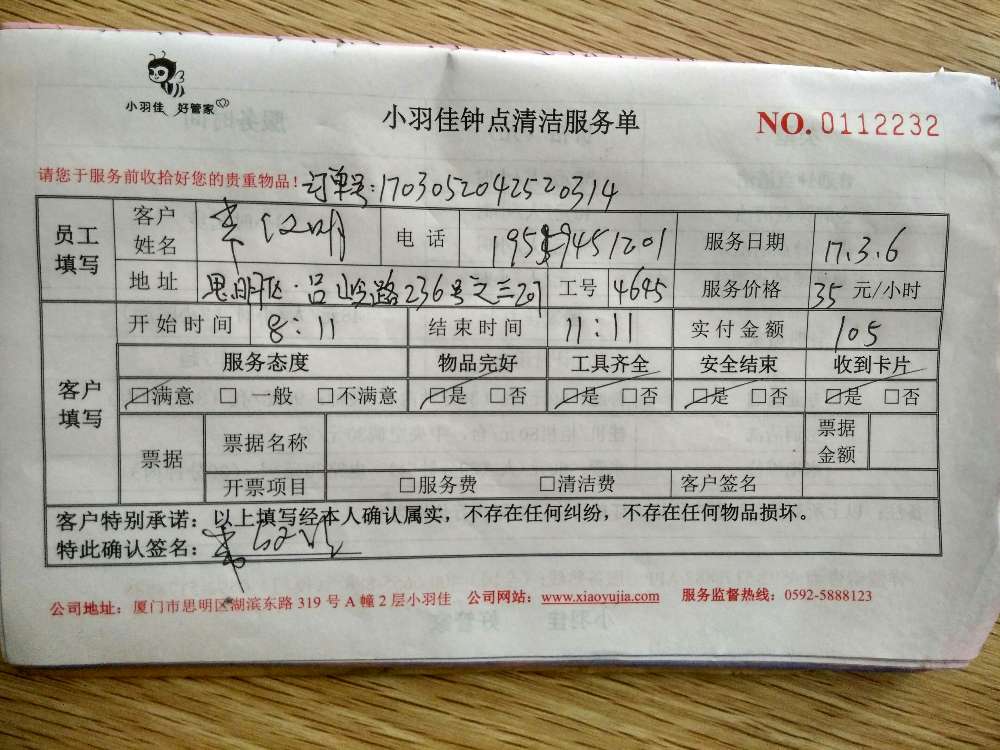 小羽佳 好管家
小羽佳钟点清洁服务单
NO. 0112232
请您于服务前收拾好您的贵重物品！ 订单号:1703052042520314
员工填写 客户姓名 电话 服务日期 17.3.6
地址 思明区·吕岭路236号之三 工号 4645 服务价格 35 元/小时
开始时间 8:11 结束时间 11:11 实付金额 105
客户填写 服务态度 物品完好 工具齐全 安全结束 收到卡片
□满意 □ 一般 □不满意 □是 □否 □是 □否 □是 □否 □是 □否
票据 票据名称 票据金额
开票项目 □服务费 □清洁费 客户签名
客户特别承诺：以上填写经本人确认属实，不存在任何纠纷，不存在任何物品损坏。
特此确认签名：
公司地址：厦门市思明区湖滨东路 319 号 A 幢 2 层小羽佳 公司网站：www.xiaoyujia.com 服务监督热线：0592-5888123